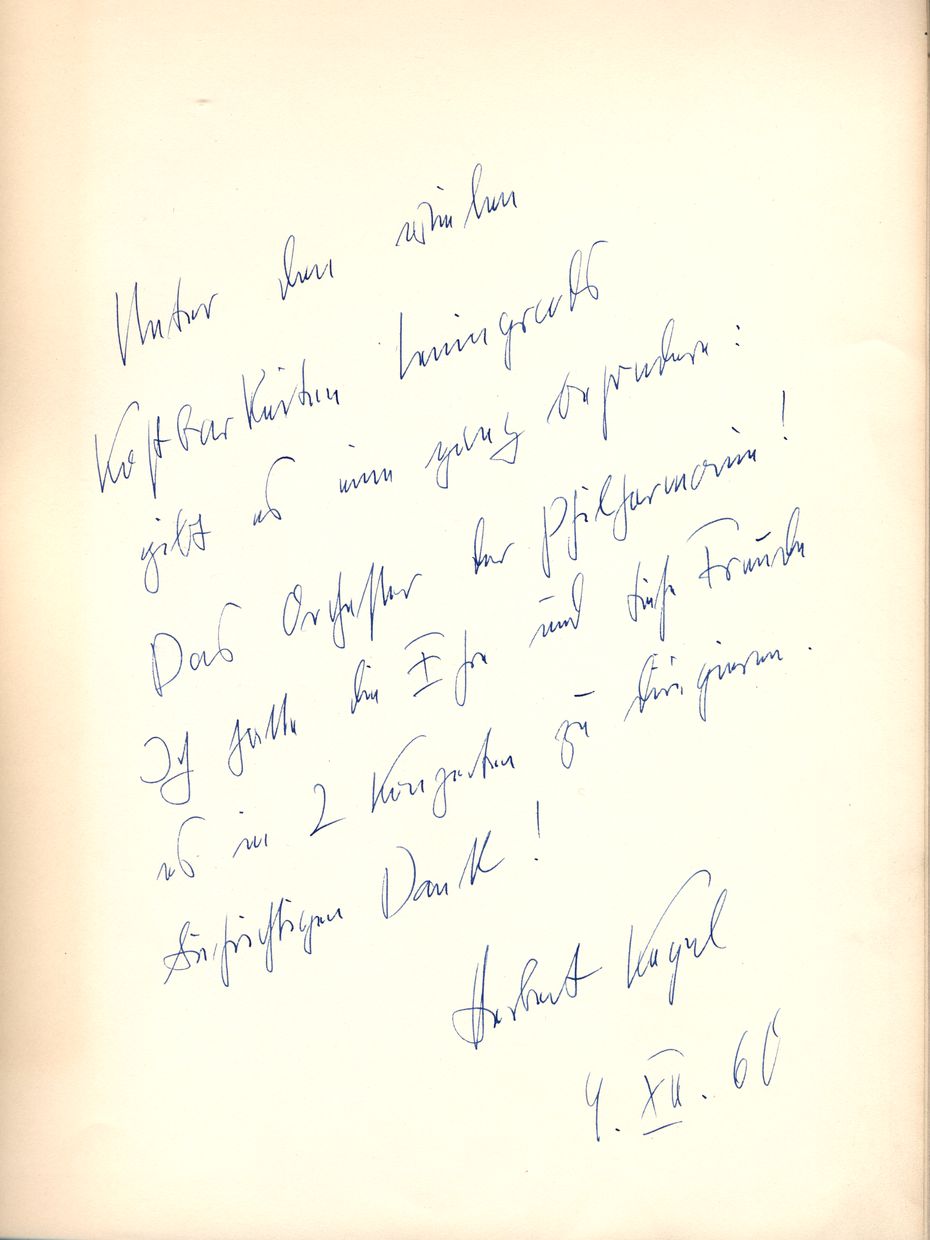 Unter den vielen
Kostbarkeiten Leningrads
gibt es eine ganz besondere:
Das Orchester der Philharmonie!
Ich hatte die Ehre und tiefe Freude
es in 2 Konzerten zu dirigieren.
Aufrichtigen Dank!
Herbert Kegel
4. XII. 60